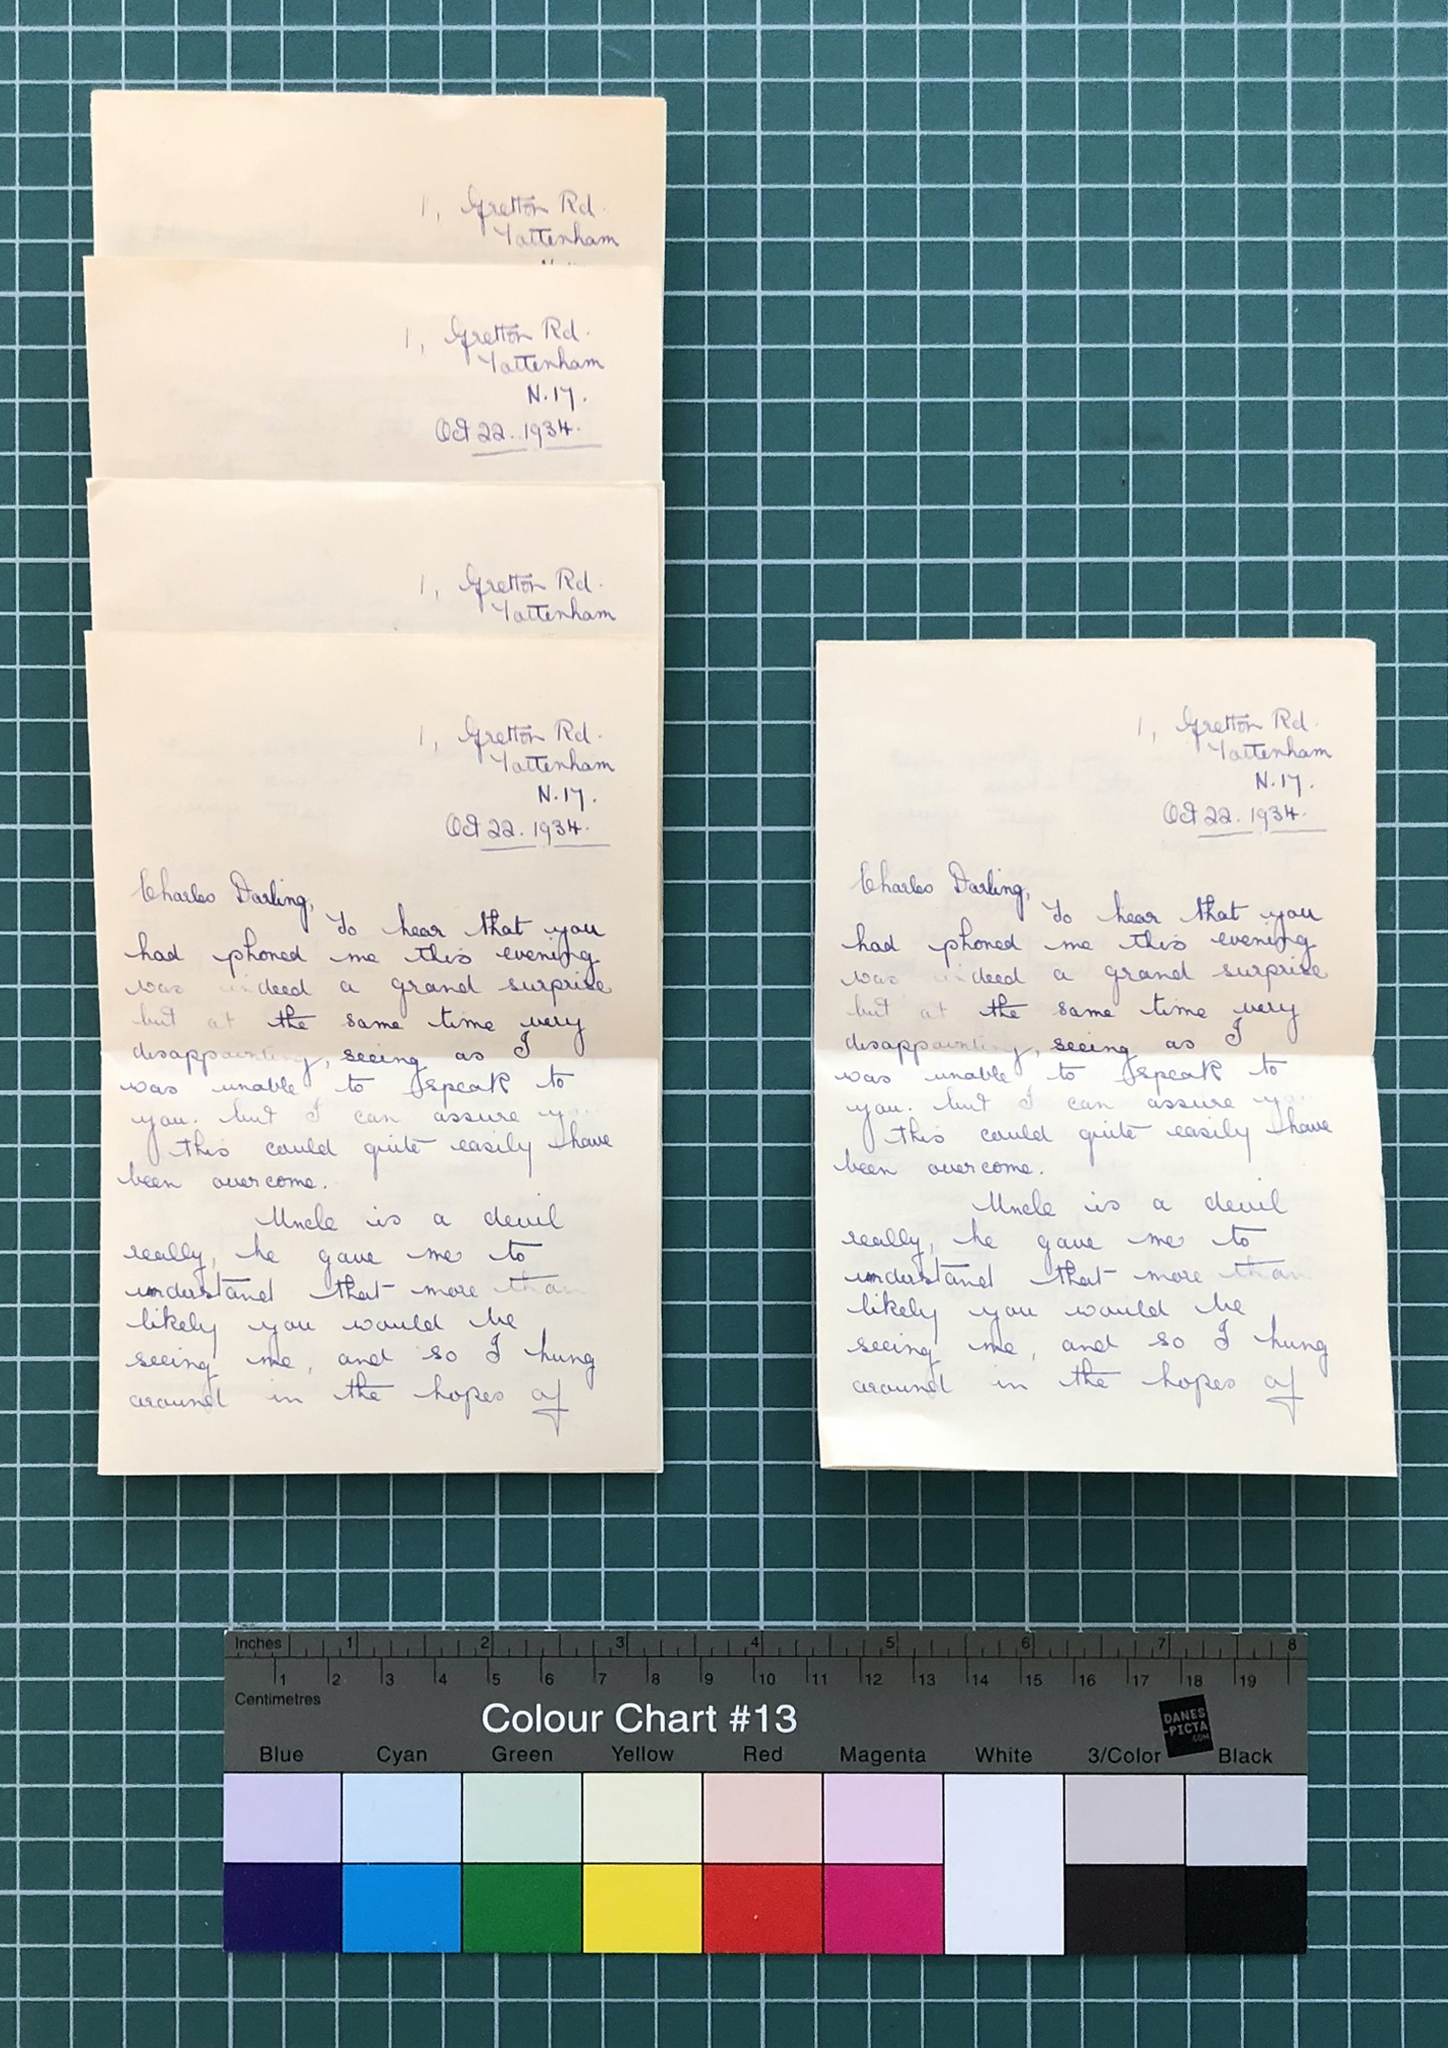 1, Gretton Rd.
Tottenham
1, Gretton Rd.
Tottenham
N.17.
Oct 22. 1934.
1, Gretton Rd.
Tottenham
1, Gretton Rd.
Tottenham
N.17.
Oct 22. 1934.
Charles Darling,
To hear that you
had phoned me this evening
was indeed a grand surprise
but at the same time very
disappointing, seeing as I
was unable to speak to
you. but I can assure you
this could quite easily have
been overcome.
Uncle is a devil
really, he gave me to
understand that more than
likely you would be
seeing me, and so I hung
around in the hopes of
1, Gretton Rd.
Tottenham
N.17.
Oct 22. 1934.
Charles Darling,
To hear that you
had phoned me this evening
was indeed a grand surprise
but at the same time very
disappointing, seeing as I
was unable to speak to
you. but I can assure you
this could quite easily have
been overcome.
Uncle is a devil
really, he gave me to
understand that more than
likely you would be
seeing me, and so I hung
around in the hopes of
Inches 1 2 3 4 5 6 7 8
1 2 3 4 5 6 7 8 9 10 11 12 13 14 15 16 17 18 19
Centimetres
Colour Chart #13
DANES
-PICTA
.COM
Blue Cyan Green Yellow Red Magenta White 3/Color Black